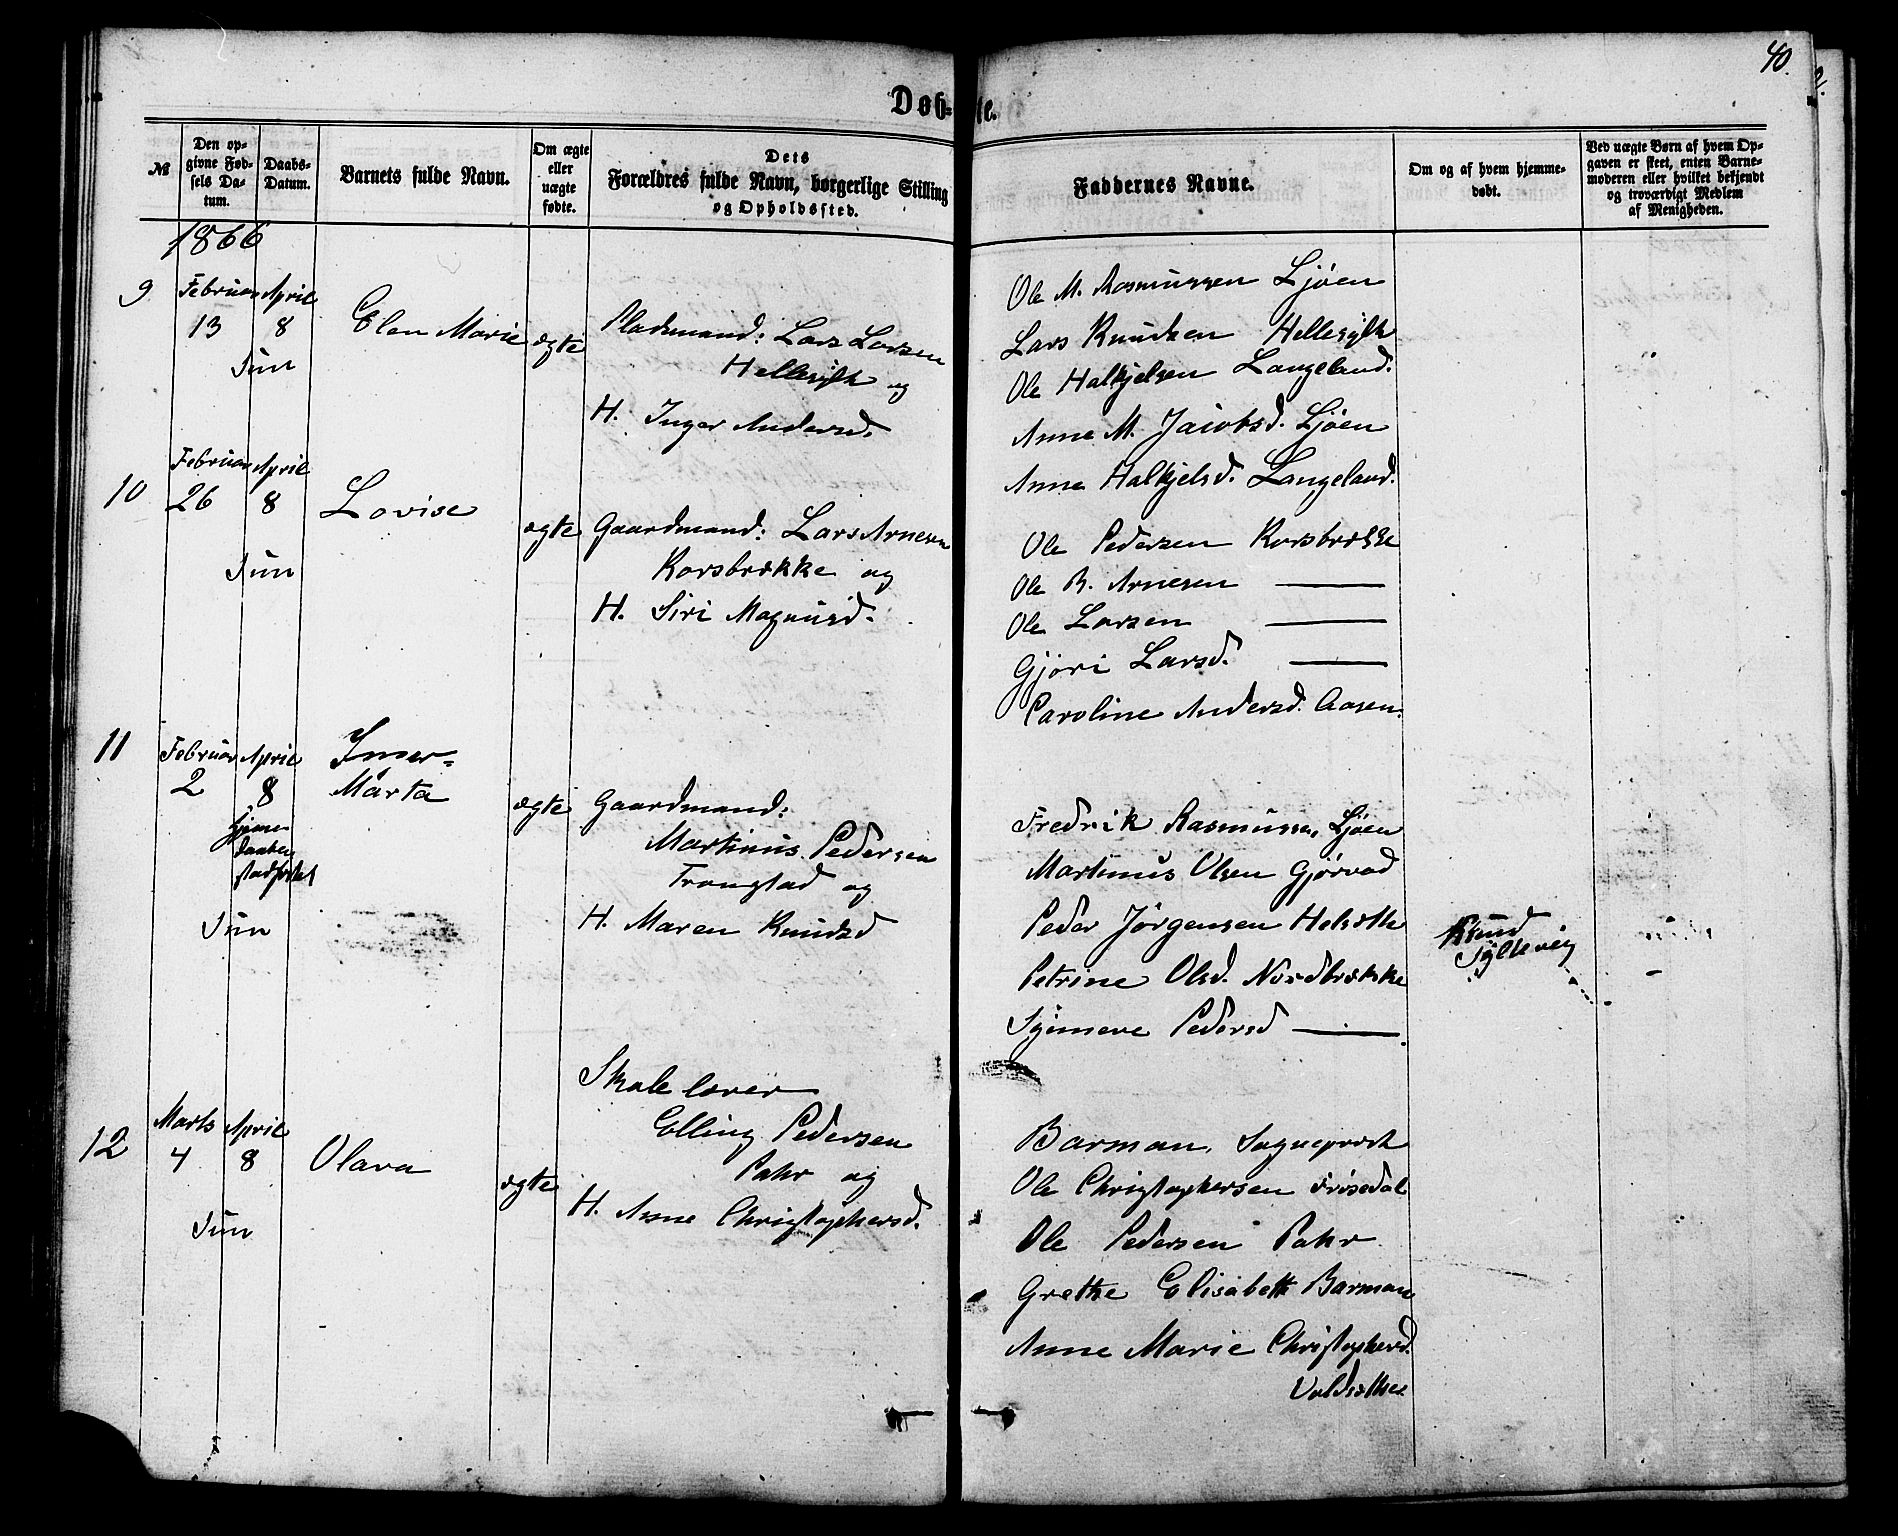 40.
Døb-
te.
№
Den op-
givne Fød-
sels Da-
tum.
Daabs-
Datum.
Barnets fulde Navn.
Om ægte
eller
uægte
fødte.
Dets
Forældres fulde Navn, borgerlige Stilling
og Opholdssted.
Faddernes Navne.
Om og af hvem hjemme-
døbt.
Ved uægte Børn af hvem Op-
gaven er skeet, enten Barne-
moderen eller hvilket bekjendt
og troværdigt Medlem
af Menigheden.
1866
9
Februar
13
April
8
Sun
Elen Marie
ægte
Pladsmand: Lars Larsen
Hellesylt og
H. Inger Andersd.
Ole M. Rasmussen Ljøen
Lars Knudsen Hellesylt
Ole Halkjelsen Langeland.
Anne M. Jacobsd. Ljøen
Anne Halkjelsd. Langeland.
10
Februar
26
April
8
Sun
Lovise
ægte
Gaardmand: Lars Arnesen
Korsbrække og
H. Siri Magnusd.
Ole Pedersen Korsbrække
Ole R. Arnesen ———
Ole Larsen ———
Gjøri Larsd. ———
Caroline Andersd. Aasen.
11
Februar
2
April
8
Hjemme
daaben
stadfæstet
Sun
Inger-
Marta
ægte
Gaardmand:
Martinus Pedersen
Tronstad og
H. Maren Knudsd
Fredrik Rasmussen Ljøen
Martinus Olsen Gjørvad
Peder Jørgensen Helsæth
Petrine Olsd. Nordbrække
Synneve Pedersd ———
Knud
Syltevig
12
Marts
4
April
8
Sun
Olava
ægte
Skolelærer
Elling Pedersen
Pahr og
H. Anne Christophersd.
Barman, Sogneprest
Ole Christophersen Frøsedal
Ole Pedersen Pahr
Grethe Elisabeth Barman
Anne Marie Christophersd.
Voldsæther